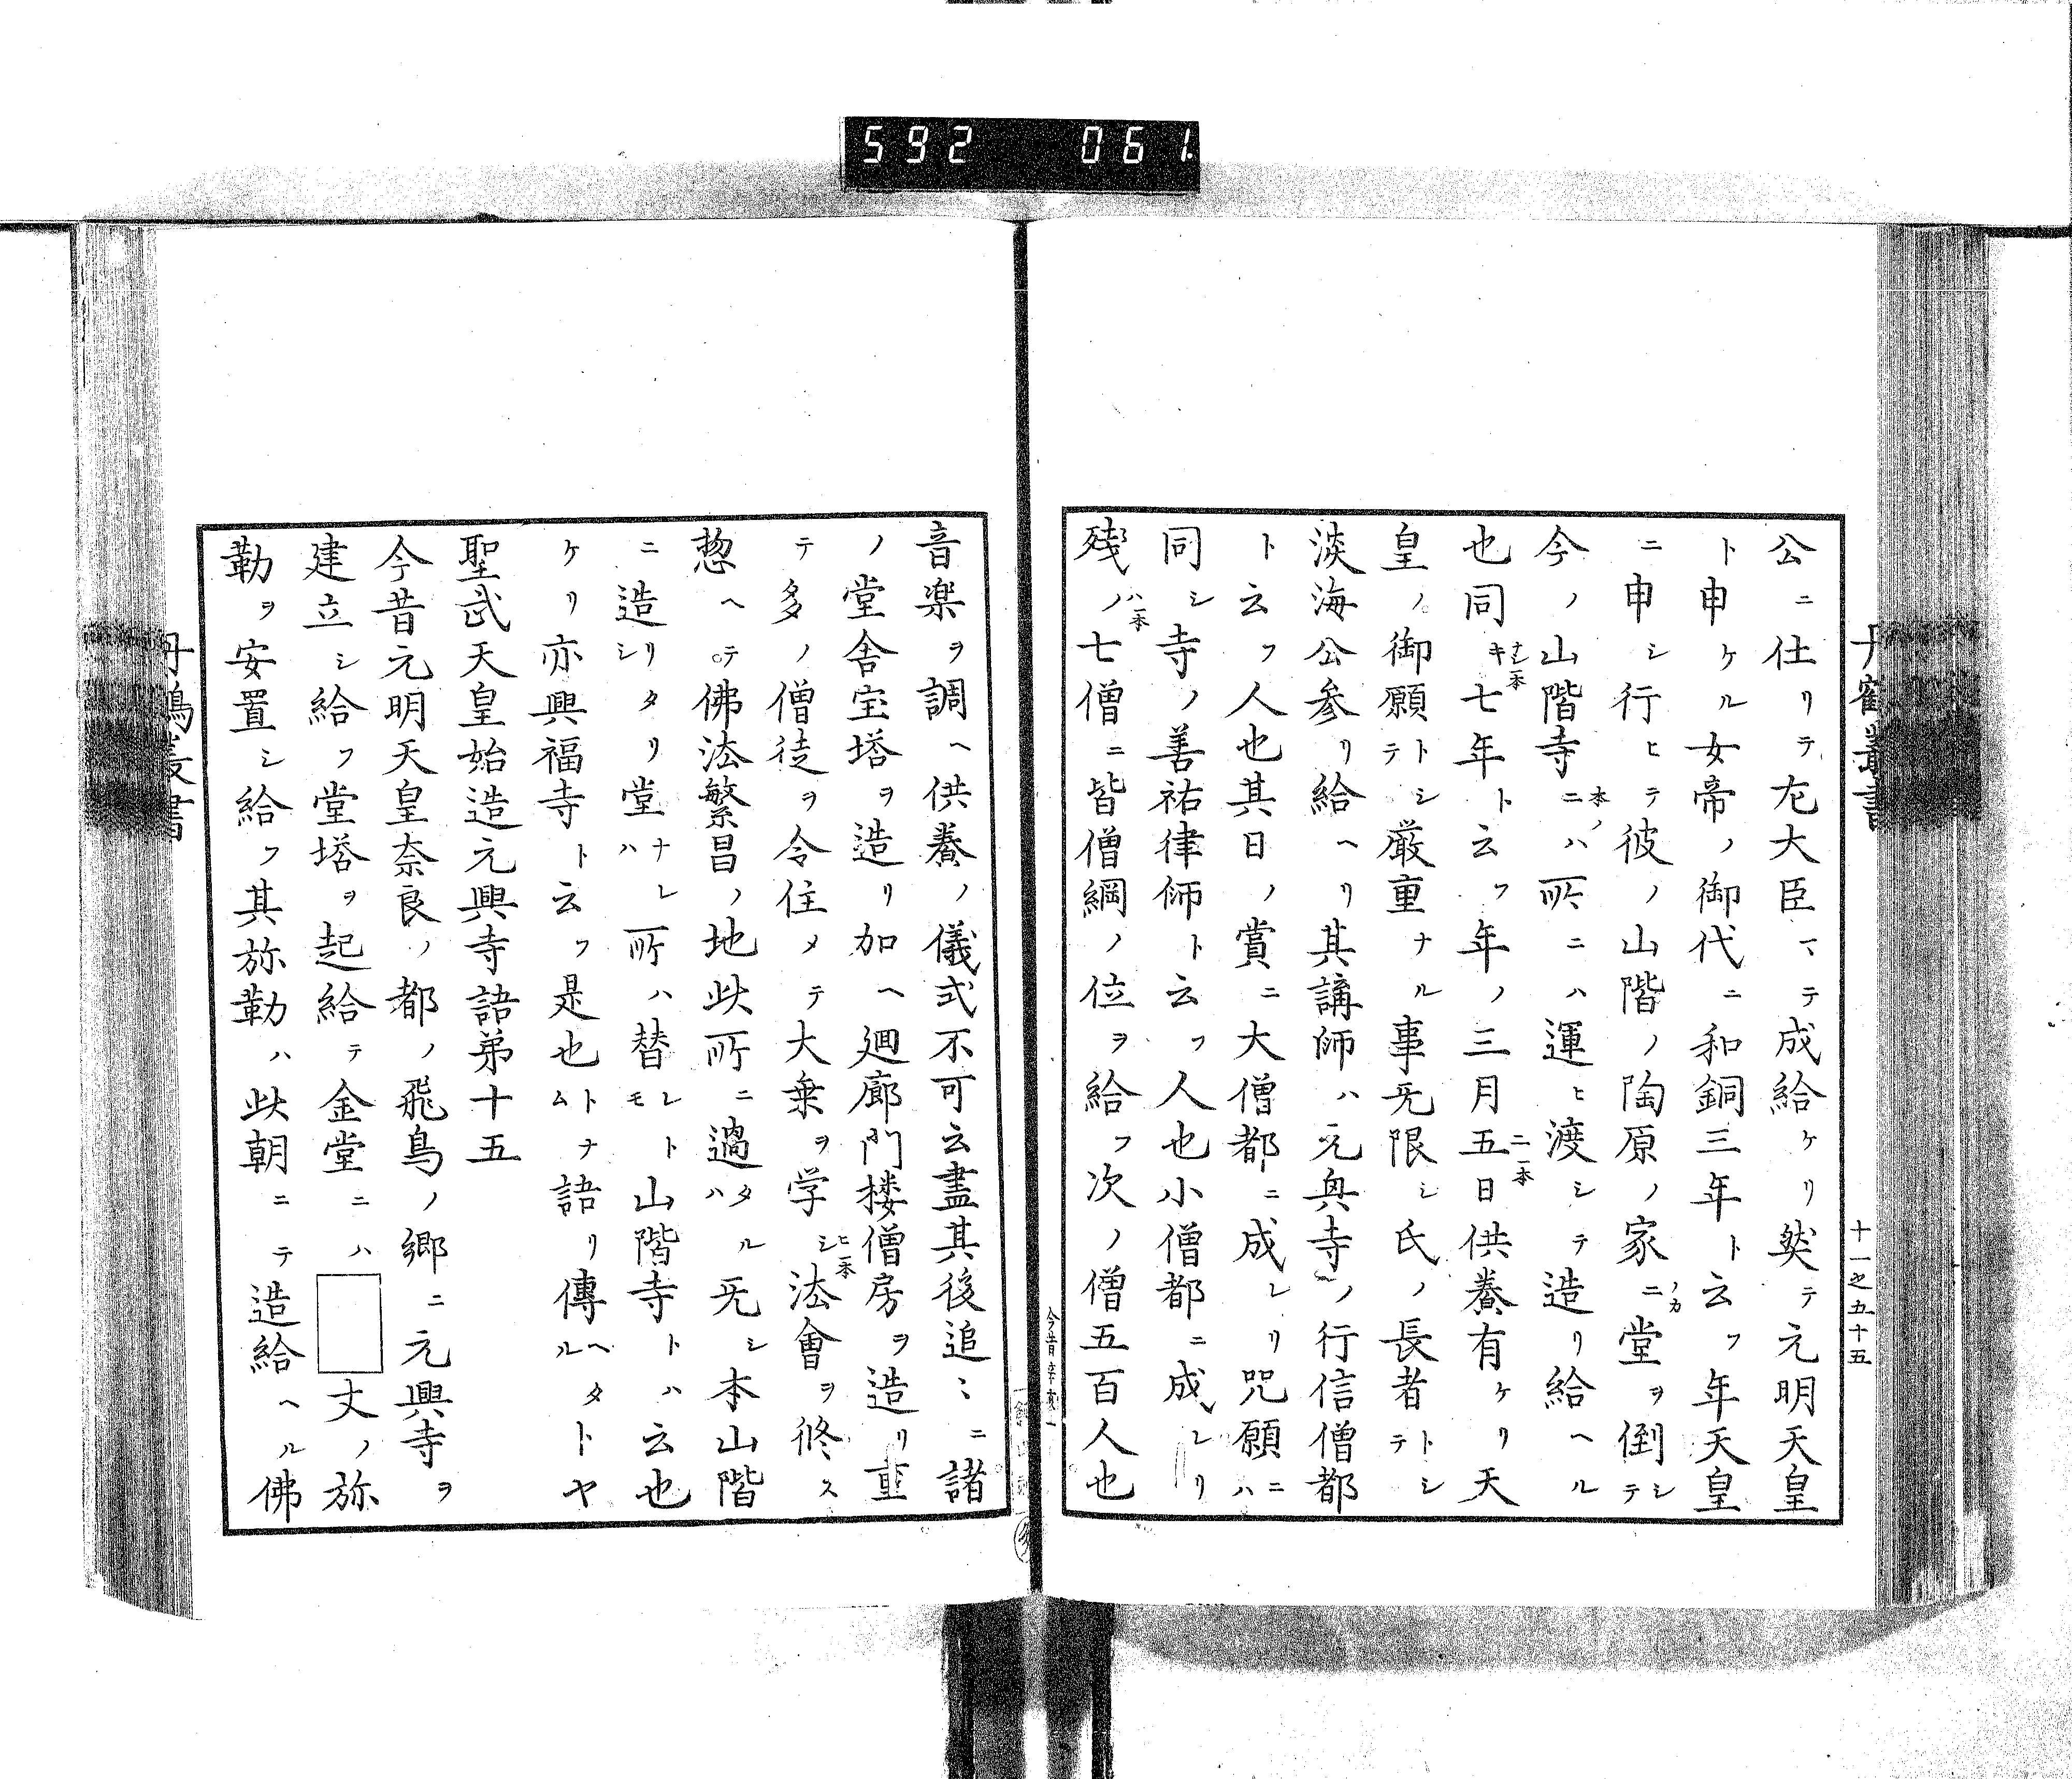 592 061.
丹寉叢書
十一之五十五
公ニ仕リテ左大臣マテ成給ケリ然テ元明天皇
ト申ケル女帝ノ御代ニ和銅三年ト云フ年天皇
ニ申シ行ヒテ彼ノ山階ノ陶原ノ家ニノカ堂ヲ倒シテ
今ノ山階寺ニ本ノハ所ニハ運ヒ渡シテ造リ給ヘル
也同キナシ一本七年ト云フ年ノ三月五ニ一本日供養有ケリ天
皇ノ御願トシテ厳重ナル事无限シ氏ノ長者トシテ
淡海公参リ給ヘリ其講師ハ元興寺ノ行信僧都
ト云フ人也其日ノ賞ニ大僧都ニ成レリ咒願ニハ
同シ寺ノ善祐律師ト云フ人也小僧都ニ成レリ
殘ノハ一本七僧ニ皆僧綱ノ位ヲ給フ次ノ僧五百人也
音楽ヲ調ヘ供養ノ儀式不可云盡其後追〻ニ諸
ノ堂舎宝塔ヲ造リ加ヘ廻廊門楼僧房ヲ造リ重
テ多ノ僧徒ヲ令住メテ大乗ヲ学シヒ一本法會ヲ修ス
惣ヘテ佛法繁昌ノ地此所ニ過タルハ无シ本山階
ニ造リタリシ堂ナレハ所ハ替レトモ山階寺トハ云也
ケリ亦興福寺ト云フ是也トナム語リ傳ヘタルトヤ
聖武天皇始造元興寺語苐十五
今昔元明天皇奈良ノ都ノ飛鳥ノ郷ニ元興寺ヲ
建立シ給フ堂塔ヲ起給テ金堂ニハ丈ノ弥
勒ヲ安置シ給フ其弥勒ハ此朝ニテ造給ヘル佛